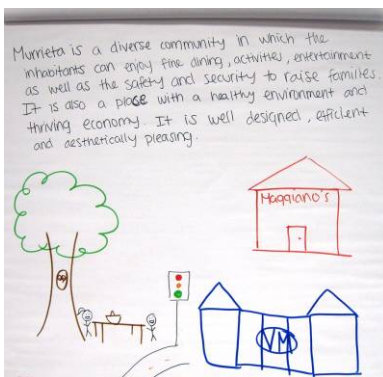 Murrieta is a diverse community in which the
inhabitants can enjoy fine dining, activities, entertainment
as well as the safety and security to raise families.
It is also a place with a healthy environment and
thriving economy. It is well designed, efficient
and aesthetically pleasing.
Maggiano's
VM